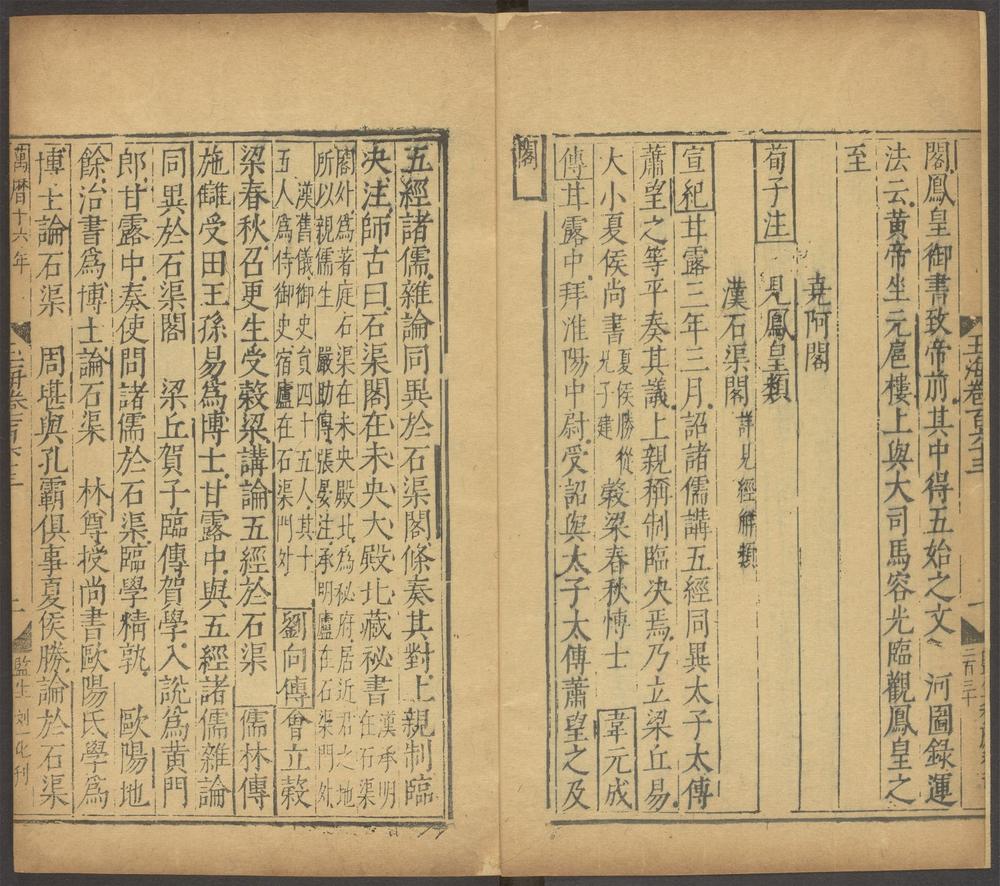 玉海卷百六十三 一 二百三十
閣鳳皇御書致帝前其中得五始之文 河圖錄運
法云黃帝坐元扈樓上與大司馬容光臨觀鳳皇之
至
堯阿閣
荀子注 見鳳皇類
漢石渠閣 詳見經解類
宣紀甘露三年三月詔諸儒講五經同異太子太傅
蕭望之等平奏其議上親稱制臨决焉乃立梁丘易
大小夏侯尚書 夏侯勝從兄子建 穀梁春秋博士 韋元成
傳甘露中拜淮陽中尉受詔與太子太傅蕭望之及
閣
五經諸儒雜論同異於石渠閣條奏其對上親制臨
决注師古曰石渠閣在未央大殿北藏秘書 漢承明在石渠
閣外爲著庭石渠在未央殿北爲秘府居近君之地
所以親儒生 嚴助傳張晏注承明廬在石渠門外
漢舊儀御史員四十五人其十
五人爲侍御史宿廬在石渠門外 劉向傳 會立穀
梁春秋召更生受穀梁講論五經於石渠 儒林傳
施讎受田王孫易爲博士甘露中與五經諸儒雜論
同異於石渠閣 梁丘賀子臨傳賀學入說爲黃門
郎甘露中奏使問諸儒於石渠臨學精孰 歐陽地
餘治書爲博士論石渠 林尊授尚書歐陽氏學爲
博士論石渠 周堪與孔霸俱事夏侯勝論於石渠
萬曆十六年 玉海卷百六十三 監生刘一化刊